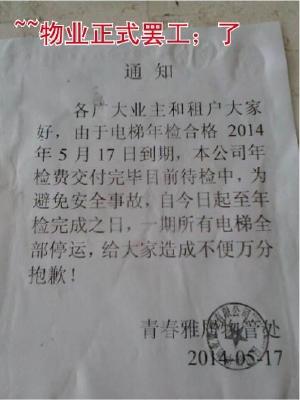 ~~物业正式罢工；了
通 知
各广大业主和租户大家
好，由于电梯年检合格 2014
年 5 月 17 日到期，本公司年
检费交付完毕目前待检中，为
避免安全事故，自今日起至年
检完成之日，一期所有电梯全
部停运，给大家造成不便万分
抱歉！
青春雅居物管处
2014-05-17